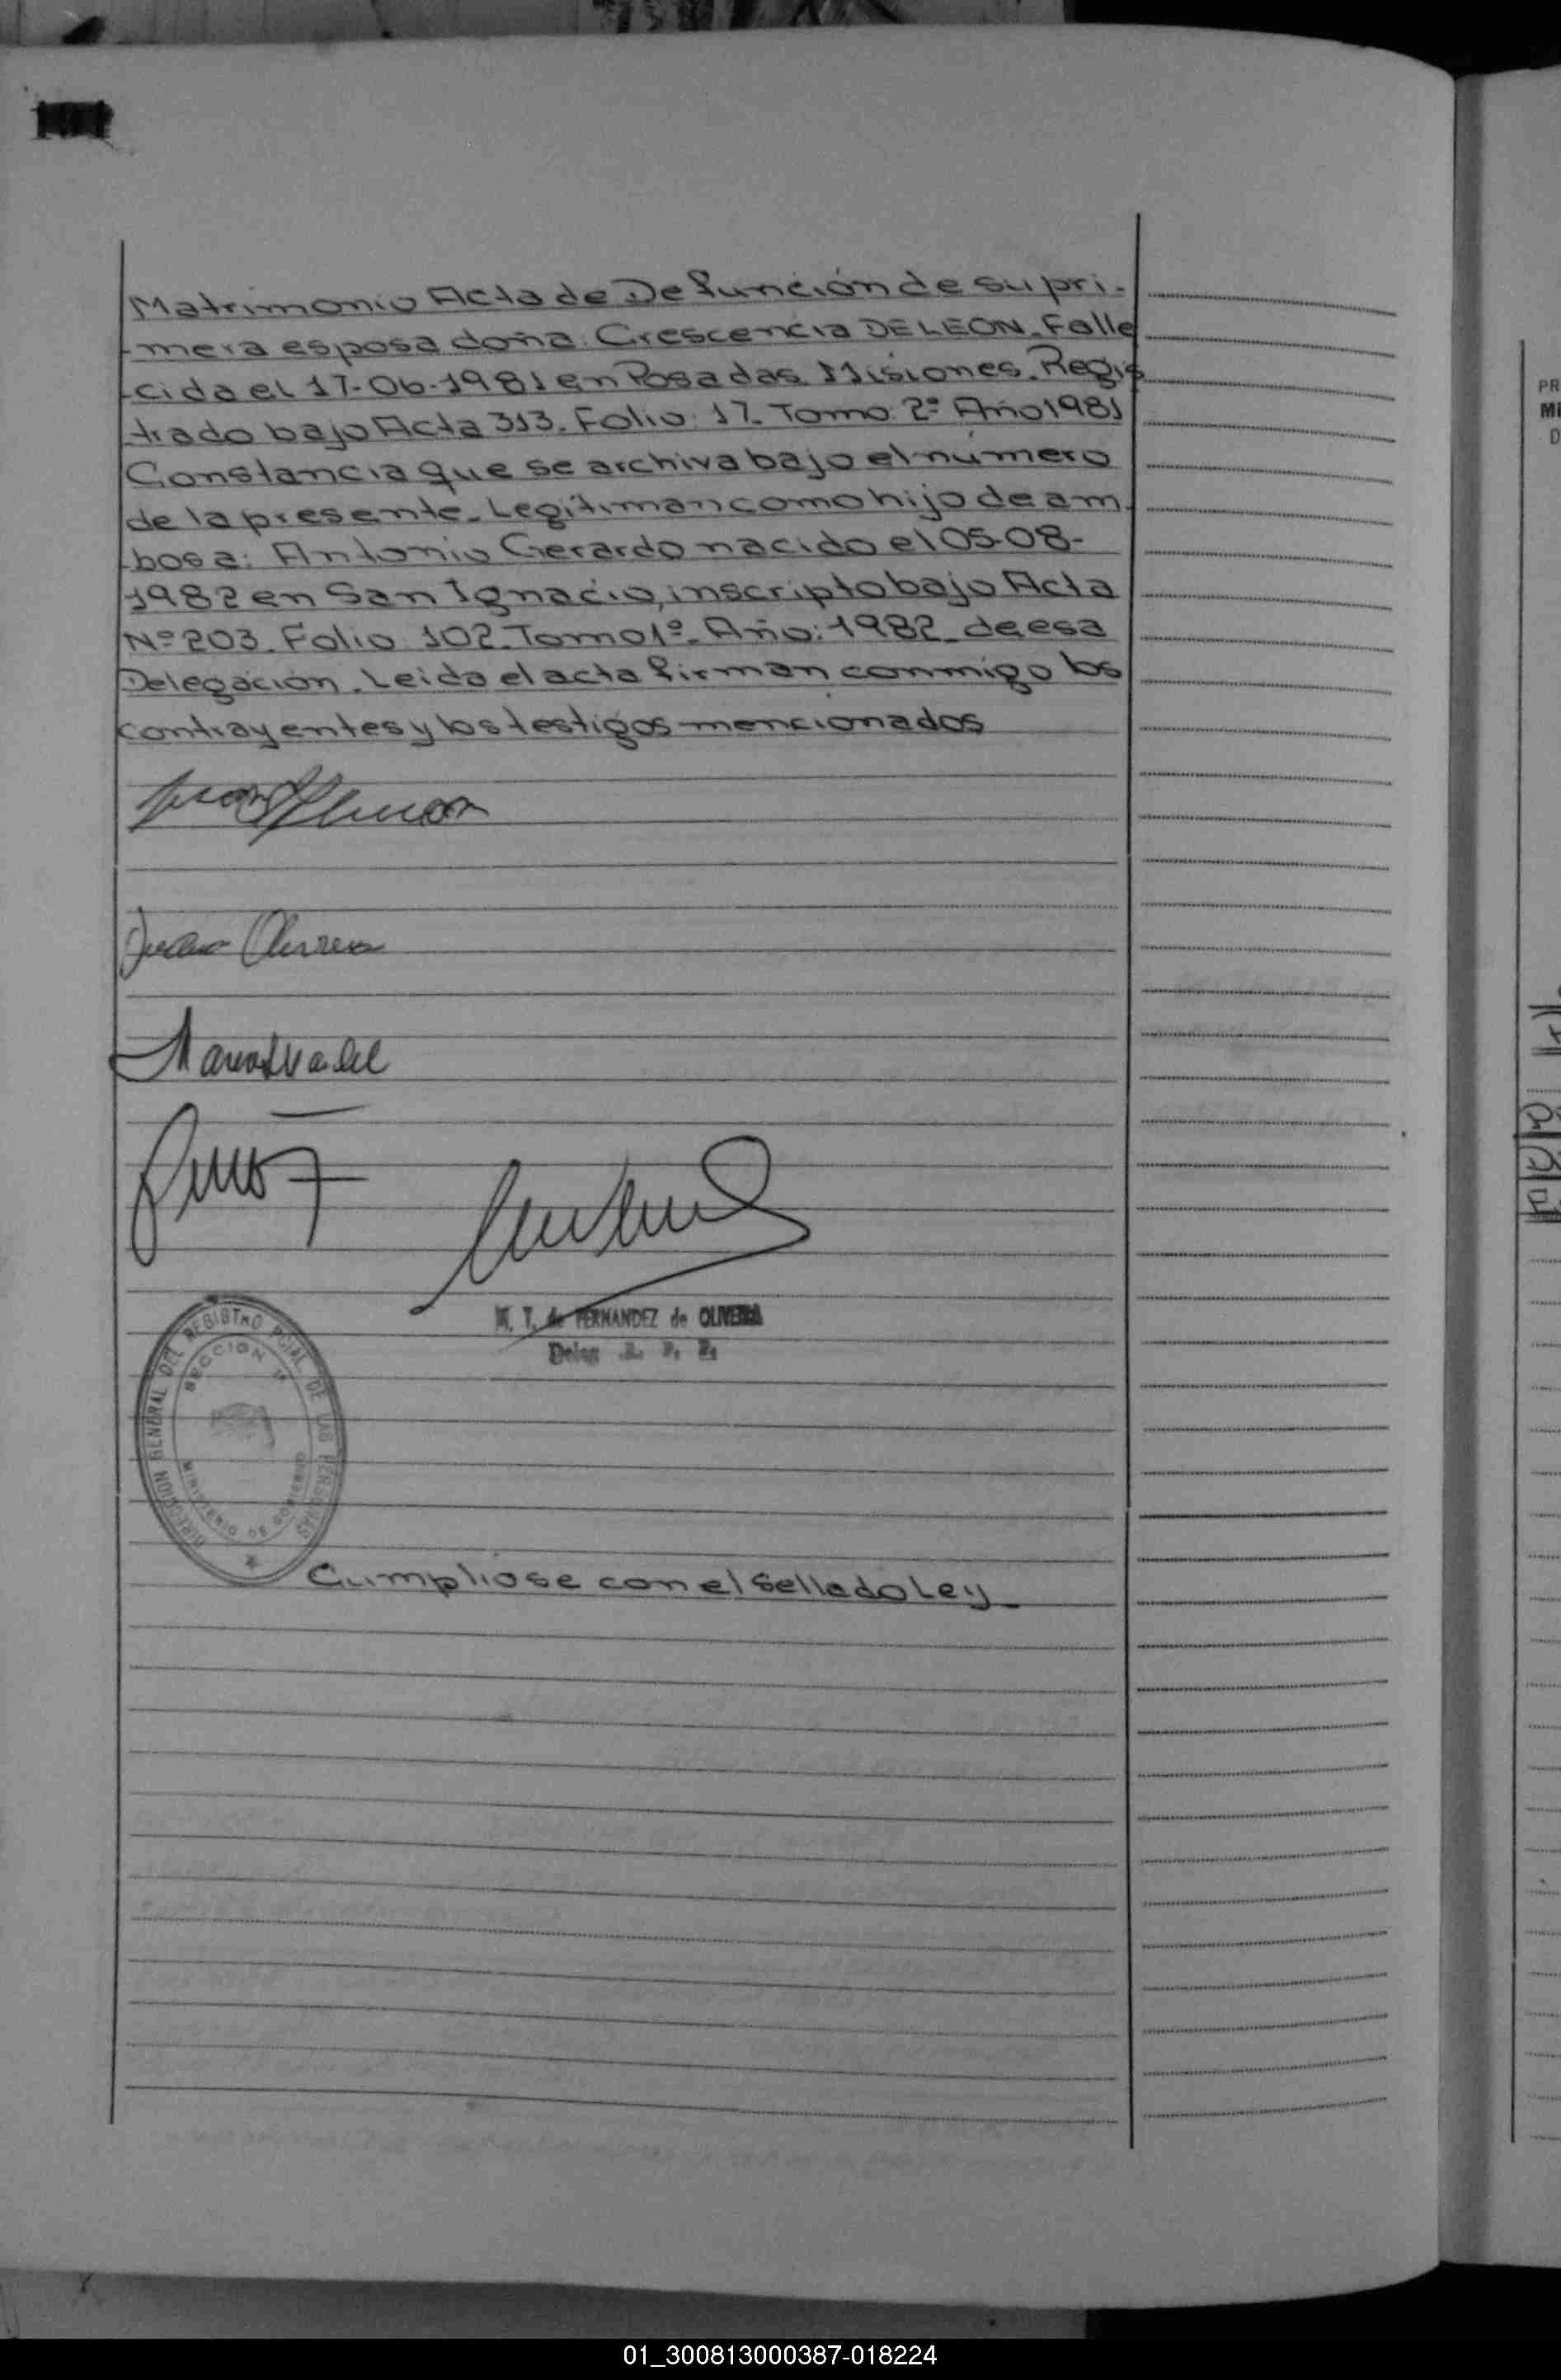 Matrimonio Acta de Defunción de su pri-
mera esposa doña: Crescencia DE LEON. Falle
cida el 17-06-1981 en Posadas Misiones. Regis
trado bajo Acta 313. Folio: 17. Tomo: 2º Año 1981
Constancia que se archiva bajo el número
de la presente. Legitiman como hijo de am
bos a: Antonio Gerardo nacido el 05-08-
1982 en San Ignacio, inscripto bajo Acta
Nº 203. Folio 102. Tomo 1º. Año: 1982. de esa
Delegación. Leida el acta firman conmigo los
contrayentes y los testigos mencionados
M. T. de FERNANDEZ de OLIVEIRA
Deleg R. P. P.
DIRECCION GENERAL DEL REGISTRO PCIAL DE LAS PERSONAS
SECCION
MINISTERIO DE GOBIERNO
Cumpliose con el Sellado Ley.
PR
Mi
D
01_300813000387-018224